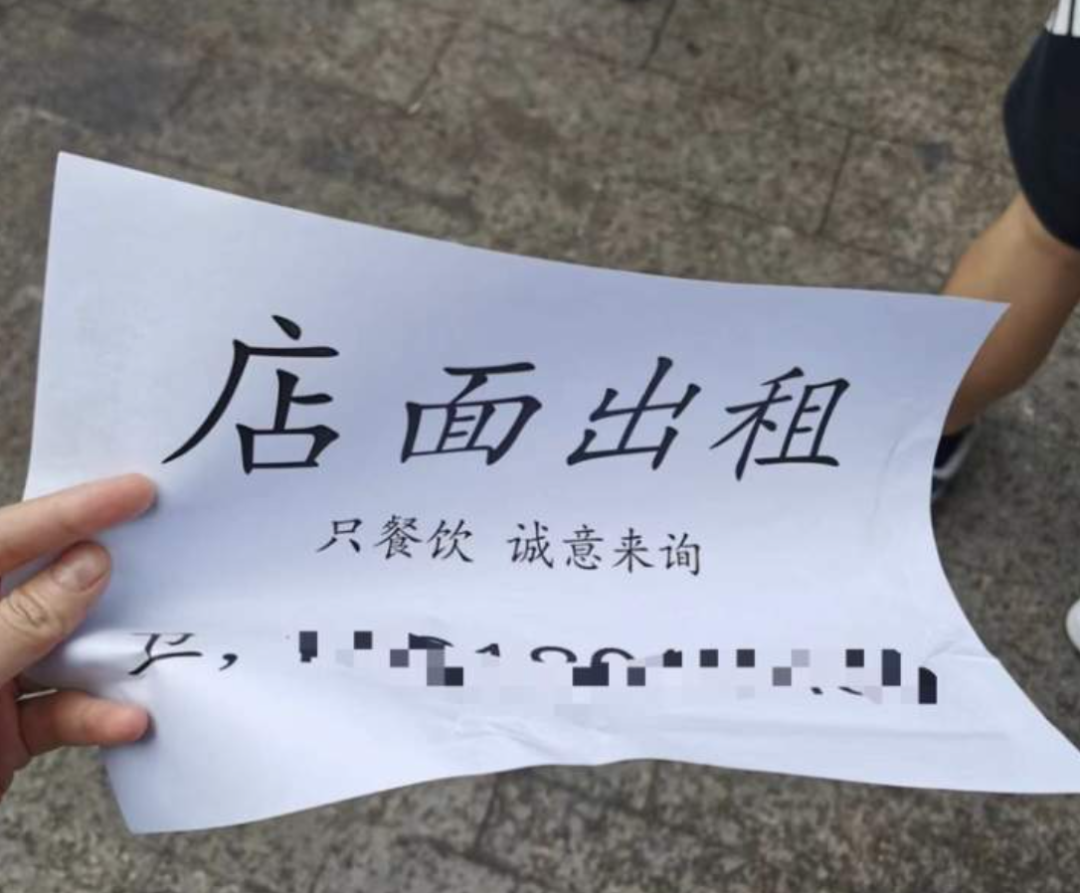 店面出租
只餐饮 诚意来询